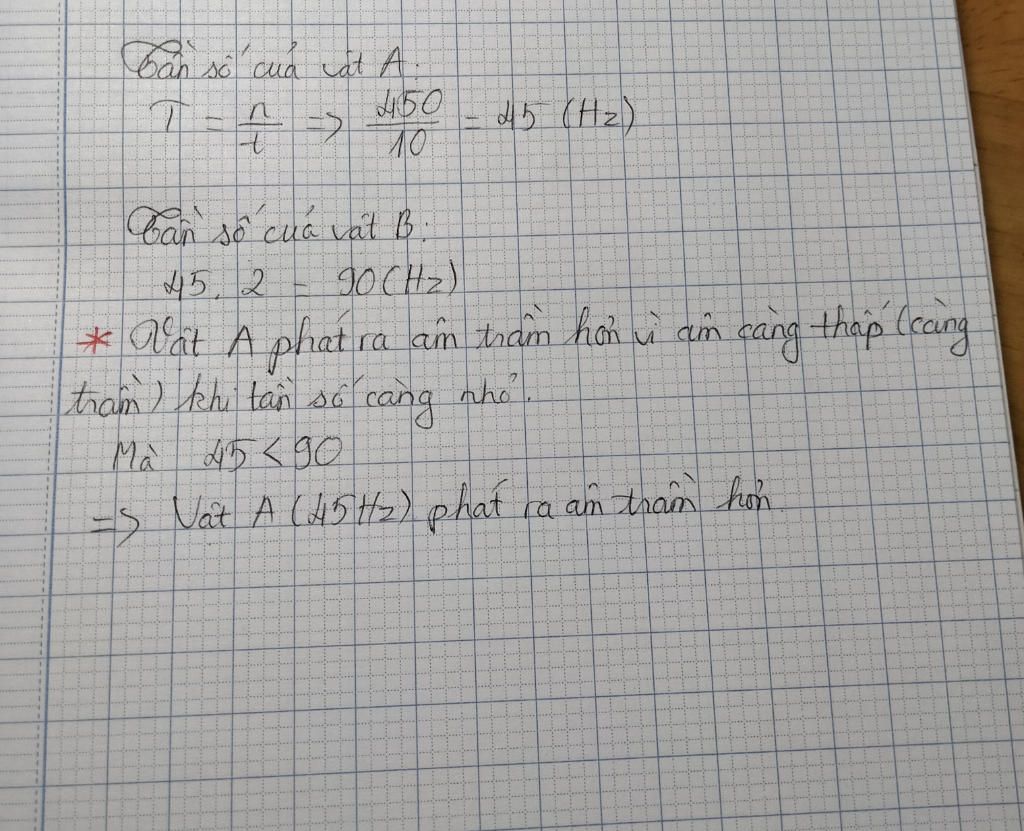 Tần số của vật A:
T = n/t => 450/10 = 45 (Hz)
Tần số của vật B:
45. 2 = 90 (Hz)
* Vật A phát ra âm trầm hơn vì âm càng thấp (càng
trầm) khi tần số càng nhỏ.
Mà 45 < 90
=> Vật A (45Hz) phát ra âm trầm hơn.